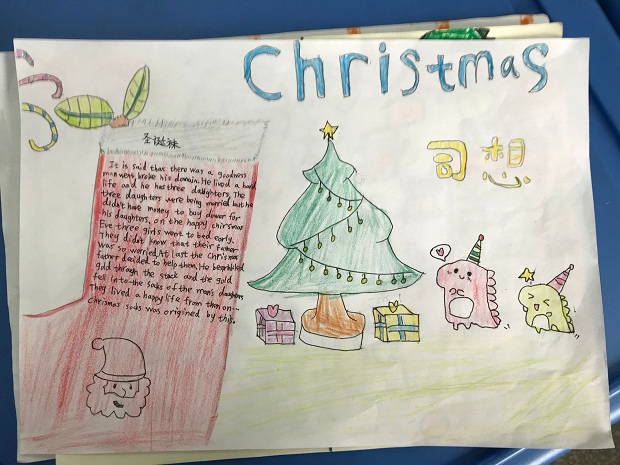 Christmas
圣诞袜
司想
It is said that there was a goodness
man went broke his domain. He lived a hard
life and he has three daughters, The
three daughters were being married but he
didn't have money to buy dower for
his daughters, on the happy chirsmas
Eve three girls went to bed early.
They didn't know that their father
was so worried. At last the Chrismas
father decided to help them. He
gold through the stack and the gold
fell into the soks of the mans daughters
They lived a happy life from then on...
Chrismas soks was origined by this.